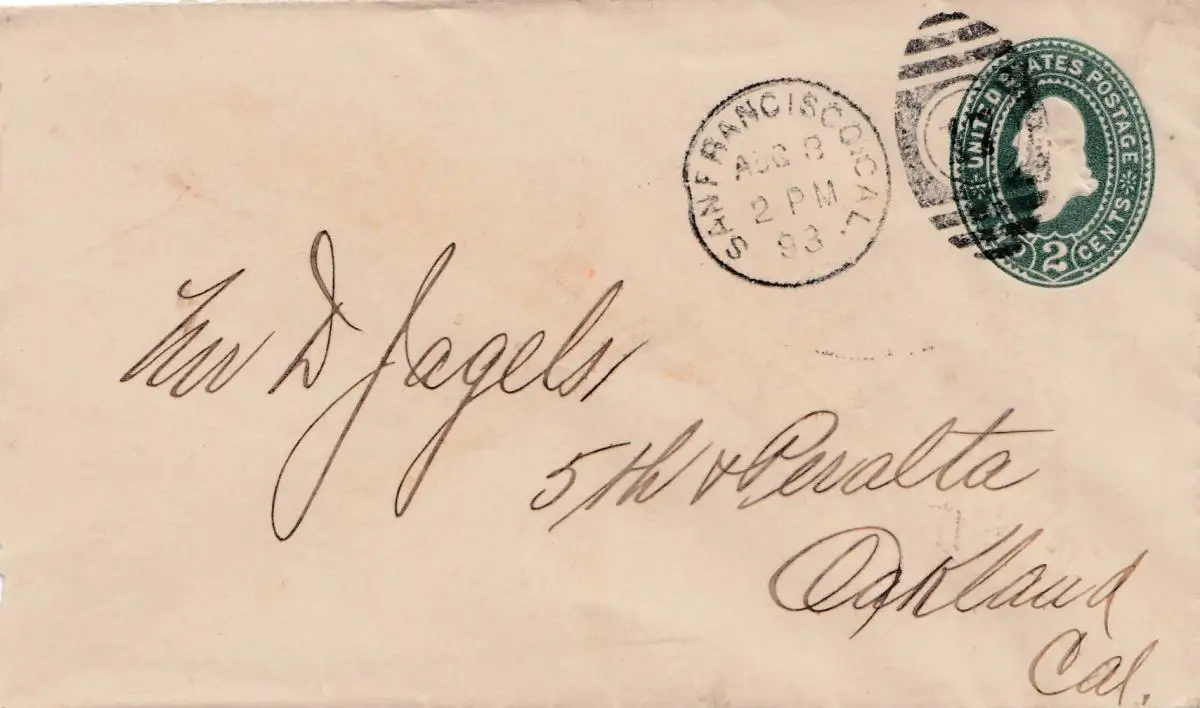 SAN FRANCISCO, CAL.
AUG 8
2 PM
93
UNITED STATES POSTAGE
2 CENTS
Mr D Jagels,
5th & Peralta
Oakland
Cal.